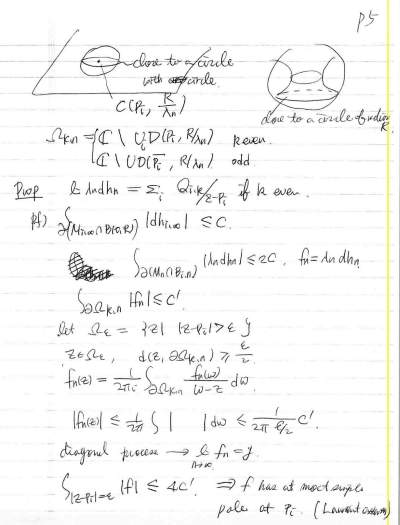 p5
close to a circle
with circle
C(Pi, R/λn)
close to a circle of radius R.
Ωk,n = { ℂ \ ∪i D(Pi, R/λn) k even.
ℂ \ ∪ D(P̄i, R/λn) odd
Prop lim λn dhn = Σi Qi,k/z-Pi if k even.
pf) ∫∂(Mi,∞∩B(0,R)) |dhi,∞| ≤ C.
∫∂(Mn∩Bi,n) |λn dhn| ≤ 2C, fn = λn dhn
∫∂Ωk,n |fn| ≤ C'
let Ωε = {z| |z-Pi| > ε}
z∈Ωε, d(z, ∂Ωk,n) ≥ ε/2
fn(z) = 1/2πi ∫∂Ωk,n fn(w)/w-z dw.
|fn(z)| ≤ 1/2π ∫ | | dw ≤ 1/2π ε/2 C'.
diagonal process → lim n→∞ fn = f.
∫|z-Pi|=ε |f| ≤ 4C' ⇒ f has at most simple
pole at Pi. (Laurent